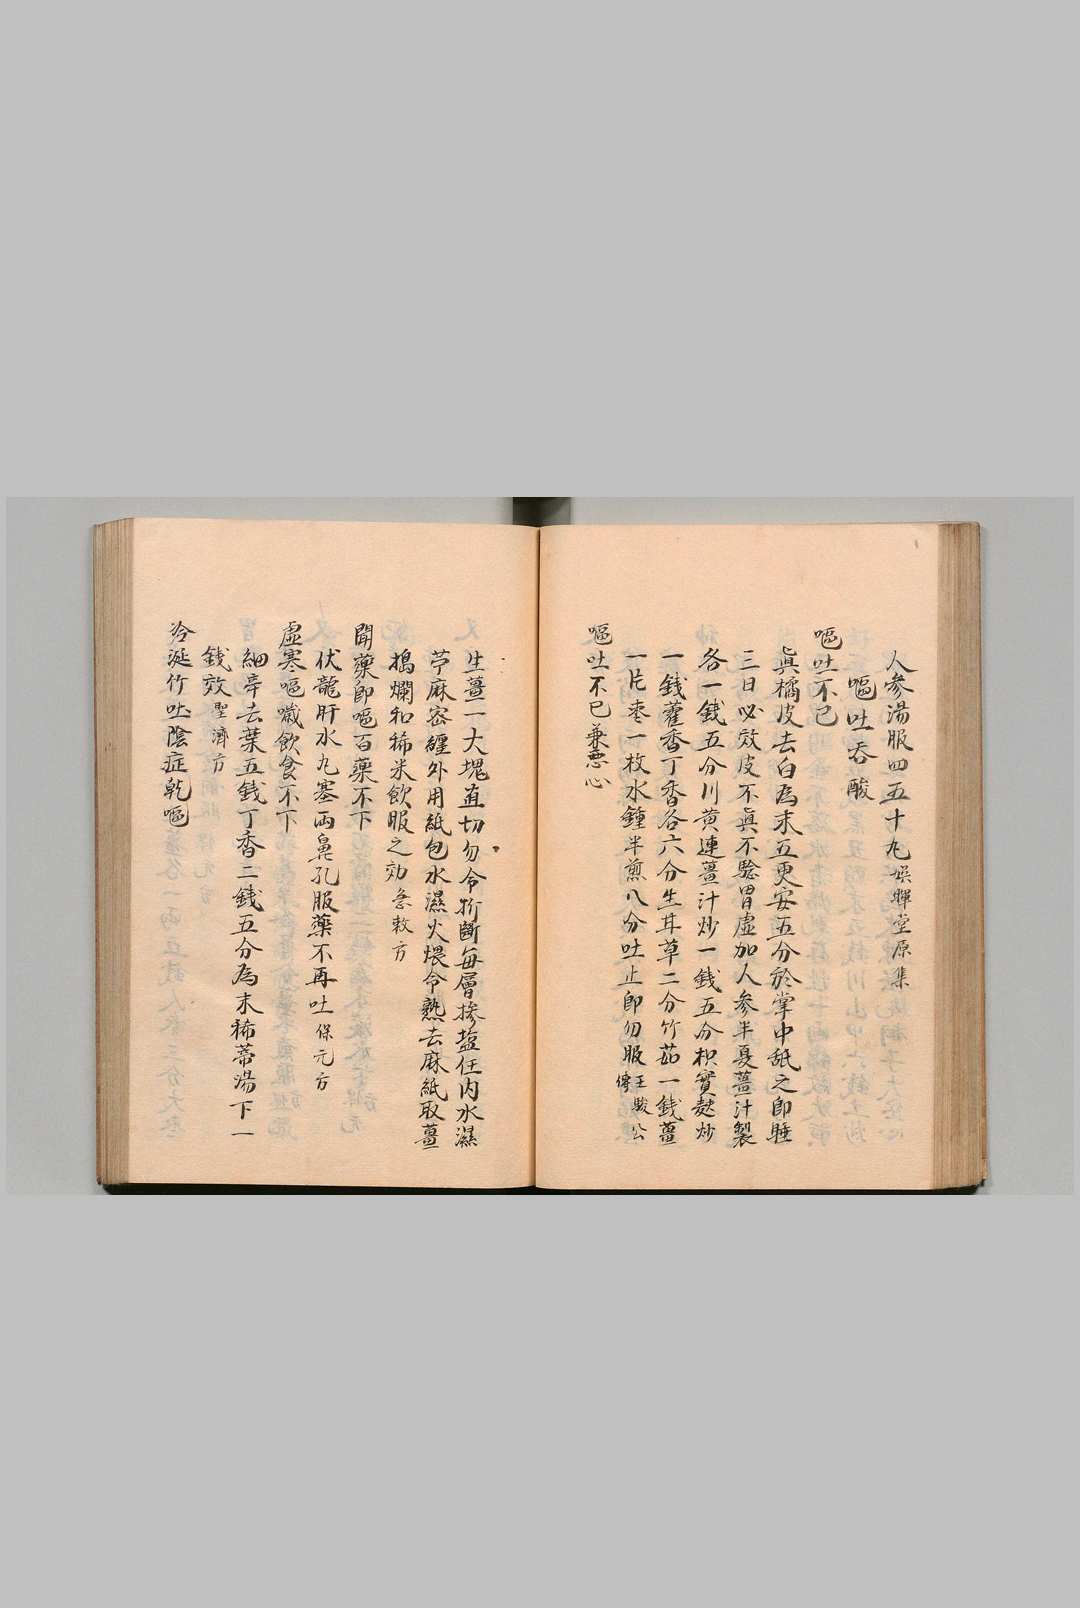 人參湯服四五十丸 娛暉堂原集
嘔吐吞酸
嘔吐不已
真橘皮去白為末五更安五分於掌中舐之即睡
三日必效皮不真不驗胃虛加人參半夏薑汁製
各一錢五分川黃連薑汁炒一錢五分枳實麩炒
一錢藿香丁香各六分生甘草二分竹茹一錢薑
一片棗一枚水鍾半煎八分吐止即勿服 王駿公
傳
嘔吐不已兼惡心
生薑一大塊直切勿令折斷每層摻鹽任內水濕
苧麻密纏外用紙包水濕火煨令熟去麻紙取薑
搗爛和稀米飲服之効 急救方
聞藥即嘔百藥不下
伏龍肝水丸塞兩鼻孔服藥不再吐 保元方
虛寒嘔噦飲食不下
細辛去葉五錢丁香二錢五分為末柿蒂湯下一
錢效 聖濟方
冷涎作吐陰症乾嘔